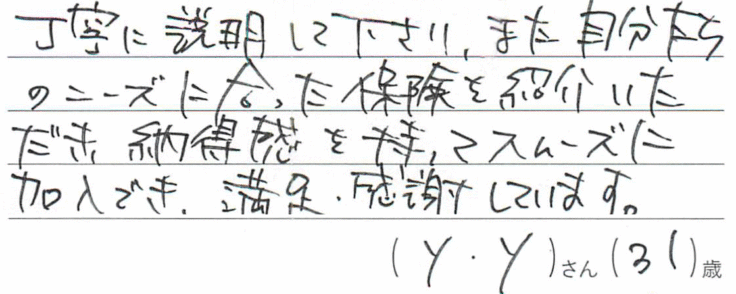 丁寧に説明して下さり、また自分たち
のニーズに合った保険を紹介いた
だき、納得感を持ってスムーズに
加入でき、満足・感謝しています。
(Y・Y)さん(31)歳